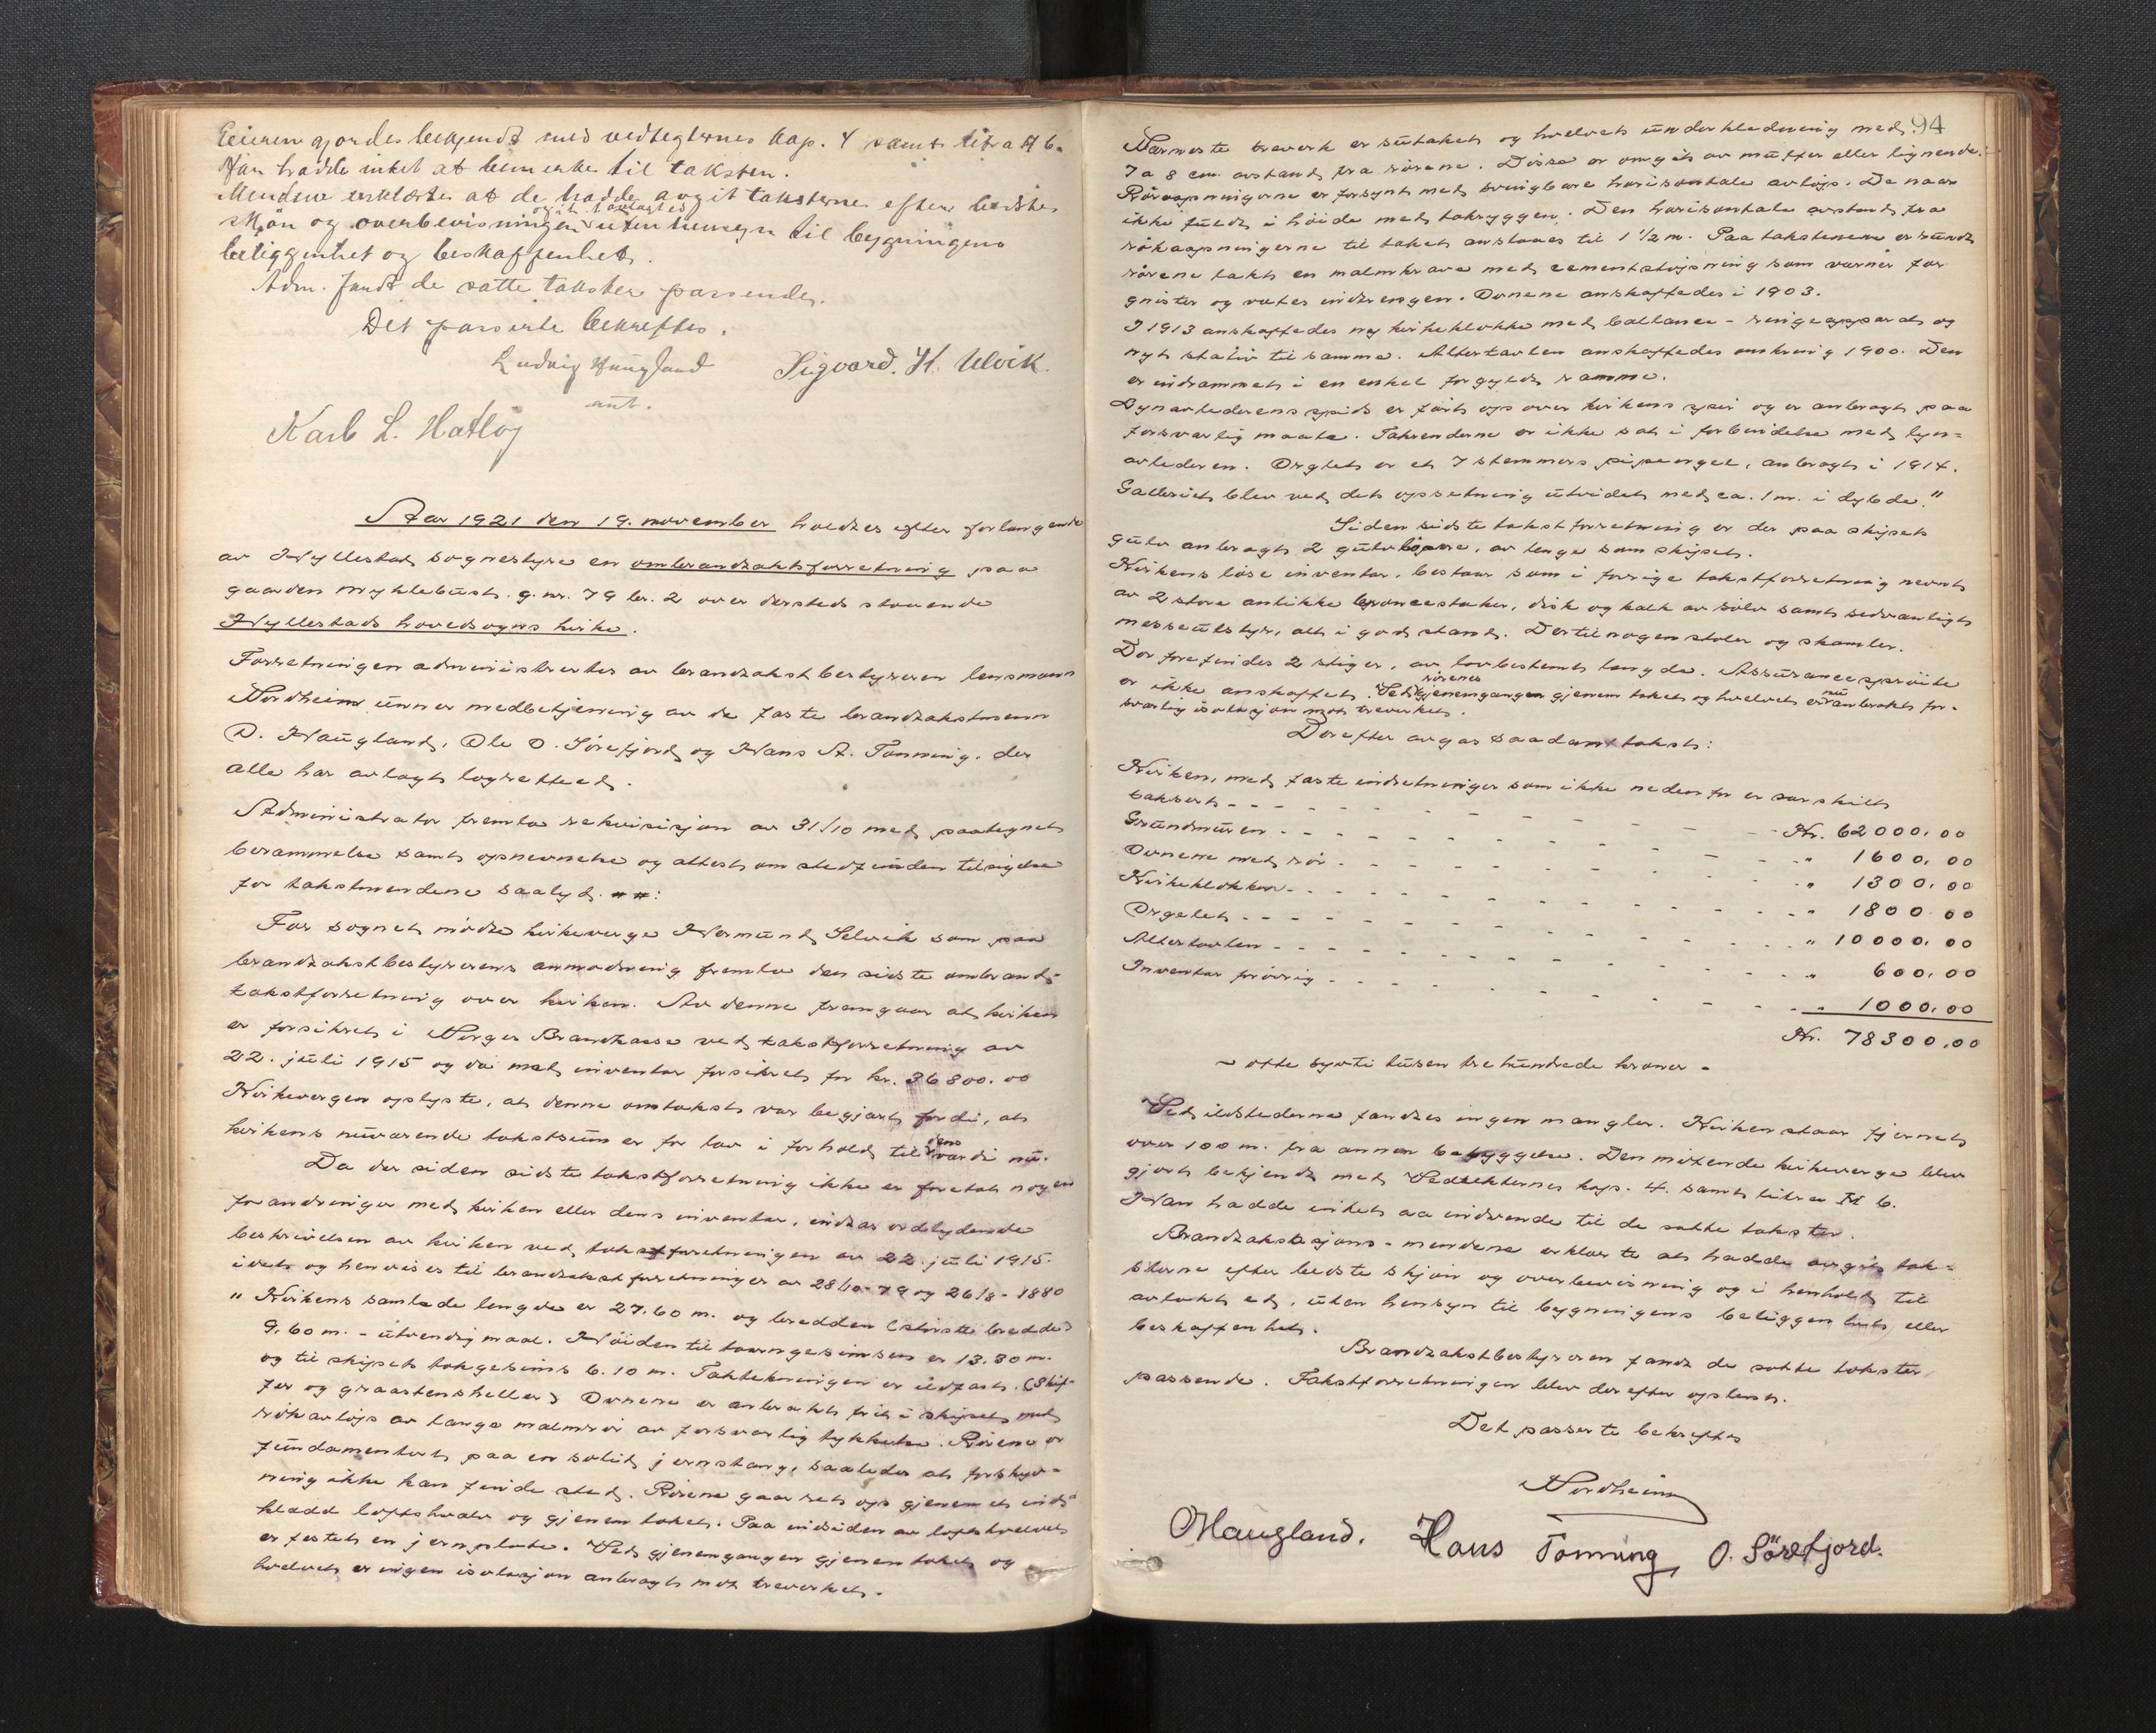 Eieren gjordes bekjendt med vedtegternes kap. 4 samt litra H 6.
Han hadde intet at bemerke til taksten.
Mendene erklærte at de hadde avgit taksterne efter bedste
skjön og overbevisning og i h. t. avlagt ed uten hensyn til bygningens
beliggenhet og beskaffenhet.
Adm. fandt de satte takster passende.
Det passerte bekreftes.
Ludvig Haugland Sigvard. H. Ulvik.
ant.
Karl L. Hatlöy
Aar 1921 den 19. november holdtes efter forlangende
av Hyllestad sognestyre en ombrandtakstforretning paa
gaarden Myklebust. g. nr. 79 br. 2 over dersteds staaende
Hyllestads hovedsogns kirke.
Forretningen administrertes av brandtakstbestyreren lensmann
Nordheim unner medbetjening av de faste brandtakstmenn
O. Haugland, Ole O. Sörefjord og Hans A. Tonning, der
alle har avlagt lagretteed.
Administrator fremla rekvisisjon av 31/10 med paategnet
berammelse samt opnevnelse og attest om stedfunden tilsigelse
for takstmendene saalyd.
For sognet mödte kirkeverge Hermund Selvik som paa
brandtakstbestyrerens anmodning fremla den sidste ombrand-
takstforretning over kirken. Av denne fremgaar at kirken
er forsikret i Norges Brandkasse ved takstforretning av
22. juli 1915 og da med inventar forsikret for kr. 36800.00
Kirkevergen oplyste, at denne omtakst var begjært fordi, at
kirkens nuværende takstsum er for lav i forhold til dens verdi nu.
Da der siden sidste takstforretning ikke er foretat nogen
forandringer med kirken eller dens inventar, indtas ordlydende
beskrivelsen av kirken ved takstforretningen av 22. juli 1915.
idet og henvises til brandtakstforretninger av 28/10-79 og 26/8-1880
" Kirkens samlede lengde er 27.60 m. og bredden (största bredde)
9.60 m. - utvendig maal. Höiden til taarngesimsen er 13.30 m.
og til skipets takgesims 6.10 m. Taktekningen er ildfast. (Skif-
fer og graastensheller) Ovnene er anbrakt frit i skipet med
rökavlöp av lange malmrör av forsvarlig tykkelse. Rörene er
fundamentert paa en solid jernstang, saaledes at forskyv-
ning ikke kan finde sted. Rörene gaar ret op gjennem et ind-
kledd loftshvelv og gjenem taket. Paa indsiden av loftshvelvet
er festet en jernplate. Ved gjenemgangen gjenem taket og
hvelvet er ingen isolasjon anbragt mot treverket.
94
Nærmeste treverk er sutaket og hvelvets underkledning med
7 a 8 cm. avstand fra rörene. Disse er omgit av muffer eller lignende.
Röraapningerne er forsynt med svingbare horisontale avlöp. De naar
ikke fuldt i höide med takryggen. Den horisontale avstand fra
rökaapningerne til taket anslaaes til 1 1/2 m. Paa takstenene er rundt
rörene lakt en malmkrave med cementstöpning som verner for
gnister og vætes indtrengen. Ovnene anskaffedes i 1903.
I 1913 anskaffedes ny kirkeklokke med ballance-ringeapparat og
nyt stativ til samme. Altertavlen anskaffedes omkring 1900. Den
er indrammet i en enkel forgyldt ramme.
Lynavlederens spids er fört op over kirkens spir og er anbragt paa
forsvarlig maate. Takrenderne er ikke sat i forbindelse med lyn-
avlederen. Orglet er et 7 stemmers pipeorgel, anbragt i 1914.
Galleriet blev ved dets opsetning utvidet med ca. 1 m. i dybde."
Siden sidste takstforretning er der paa skipets
gulv anbragt 2 gulvlöpere, av lengde som skipet.
Kirkens löse inventar, bestaar som i forrige takstforretning nevnt
av 2 store antikke broncestaker, disk og kalk av sölv samt sedvanligt
messeutstyr, alt i god stand. Dertil nogen stoler og skamler.
Der forefindes 2 stiger, av lovbestemt længde. Assurancespröite
er ikke anskaffet. Ved rörenes gjenemgangen gjenem taket og hvelvet er nu anbrakt for-
svarlig isolasjon mot treverket.
Derefter avgas saadan takst:
Kirken, med faste indretninger som ikke nedenfor er særskilt
taksert - - - Kr. 62000.00
Grundmuren - - - " 1600.00
Ovnene med rör - - - " 1300.00
Kirkeklokken - - - " 1800.00
Orgelet - - - " 10000.00
Altertavlen - - - " 600.00
Inventar forövrig - - - " 1000.00
Kr. 78300.00
- otte sytti tusen tre hundrede kroner -
Ved ildstederne fandtes ingen mangler. Kirken staar fjernet
over 100 m. fra annen bebyggelse. Den mötende kirkeverge blev
gjort bekjendt med Vedtekternes kap. 4. samt litra H 6.
Han hadde intet aa indvende til de satte takster.
Brandtakstasjons-mendene erklærte at hadde avgit tak-
sterne efter bedste skjön og overbevisning og i henhold til
avlakt ed, uten hensyn til bygningens beliggenhet eller
beskaffenhet.
Brandtakstbestyreren fandt de satte takster
passende. Takstforretningen blev derefter oplest.
Det passerte bekreftes
Nordheim
OHaugland. Hans Tonning O. Sörefjord.